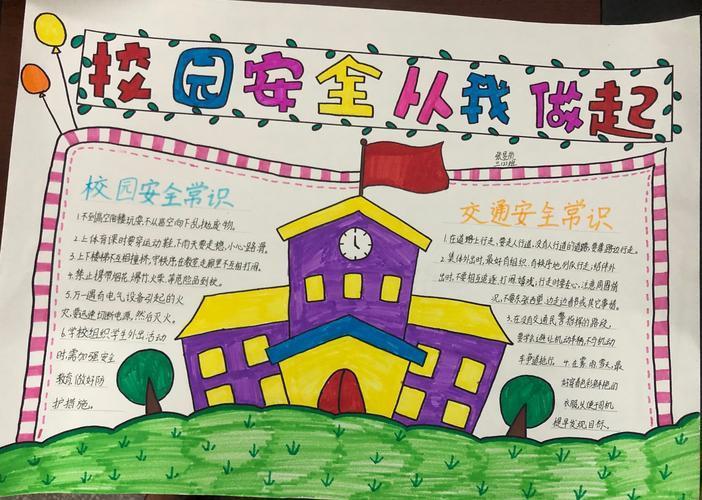 校园安全从我做起
三(2)班
校园安全常识
1.不到高空阁楼玩耍,不从高空向下乱抛废物。
2.上体育课时要穿运动鞋,下雨天要走稳,小心路滑。
3.上下楼梯不互相撞挤,守秩序,在教室走廊里不互相打闹。
4.禁止携带烟花、爆竹火柴、等危险品到校。
5.万一遇有电气设备引起的火
灾,要迅速切断电源,然后灭火。
6.学校组织学生外出活动
时,需加强安全
教育,做好防
护措施。
交通安全常识
1.在道路上行走,要走人行道,没有人行道的道路,要靠路边行走。
2.集体外出时,最好有组织、有秩序地列队行走;结伴外
出时,不要相互追逐、打闹、嬉戏;行走时要专心,注意周围情
况,不要东张西望、边走边看书或其它事情。
3.在没有交通民警指挥的路段,
要学会避让机动车辆,不与机动
车争道抢行。4.在雾、雨、雪天,最
好穿着色彩鲜艳的
衣服,以便司机
提早发现目标。